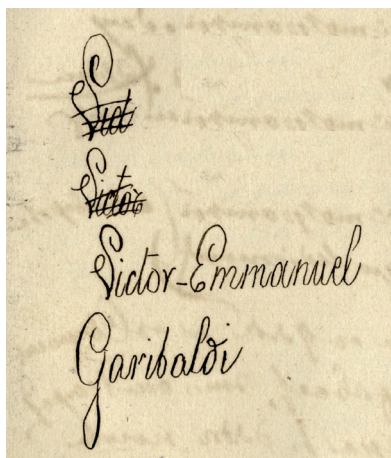 Vict
Victor
Victor-Emmanuel
Garibaldi